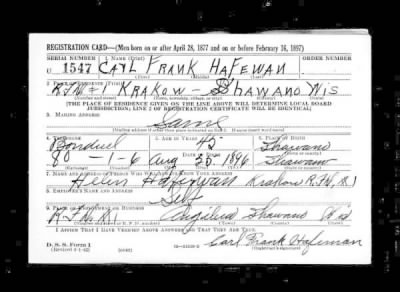 REGISTRATION CARD—(Men born on or after April 28, 1877 and on or before February 16, 1897)
SERIAL NUMBER 1. NAME (Print) ORDER NUMBER
U 1547 CARL FRANK HAFEMAN
(First) (Middle) (Last)
2. PLACE OF RESIDENCE (Print)
R.F.D. #1 KRAKOW - SHAWANO WIS
(Number and street) (Town, township, village, or city) (County) (State)
[THE PLACE OF RESIDENCE GIVEN ON THE LINE ABOVE WILL DETERMINE LOCAL BOARD
JURISDICTION; LINE 2 OF REGISTRATION CERTIFICATE WILL BE IDENTICAL]
3. MAILING ADDRESS
Same
(Mailing address if other than place indicated on line 2. If same insert word same)
4. TELEPHONE 5. AGE IN YEARS 6. PLACE OF BIRTH
Bonduel 45 Shawano
DATE OF BIRTH
80-1-6 Aug 25. 1896 Shawano
7. NAME AND ADDRESS OF PERSON WHO WILL ALWAYS KNOW YOUR ADDRESS
Helen Hafeman Krakow R.F.D. #1
8. EMPLOYER'S NAME AND ADDRESS
Self
9. PLACE OF EMPLOYMENT OR BUSINESS
R.F.D. #1 Angelica Shawano Wis
(Number and street or R. F. D. number) (Town) (County) (State)
I AFFIRM THAT I HAVE VERIFIED ABOVE ANSWERS AND THAT THEY ARE TRUE.
D. S. S. Form 1
(Revised 4-1-42) (over)
Carl Frank Hafeman
(Registrant's signature)